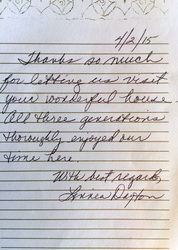 4/2/15
Thanks so much
for letting us visit
your wonderful house
All three generations
thoroughly enjoyed our
time here.
With best regards,
Dayton